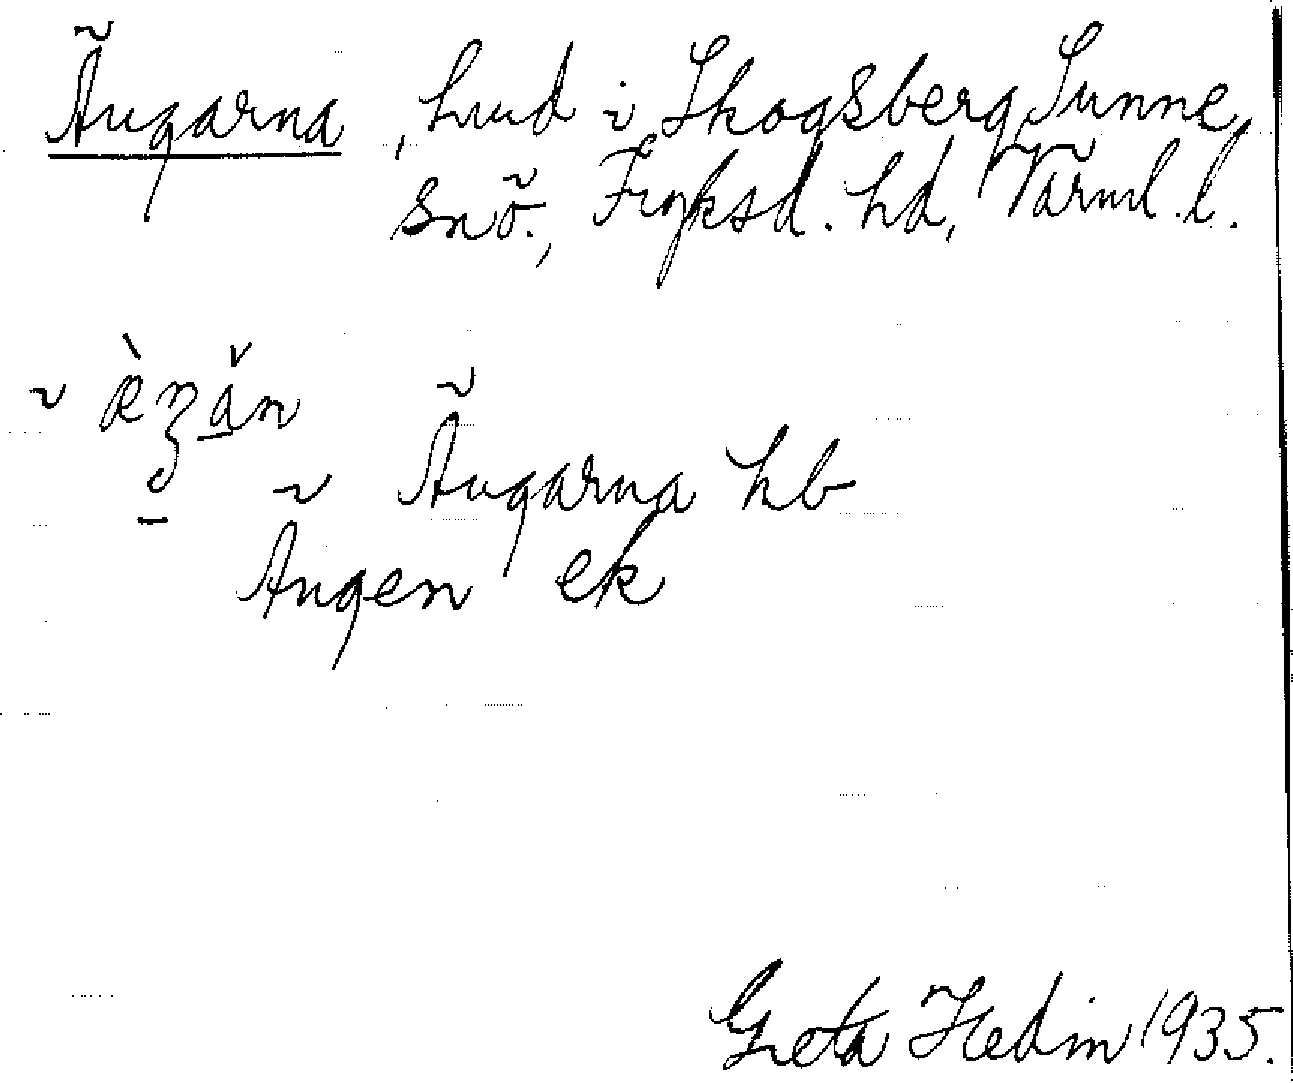 Ängarna, hmd i Skogsberg, Sunne
snö., Fryksd. hd, Värml. l.
~ Ängarna hb
Ängen ek
Greta Hedin 1935.